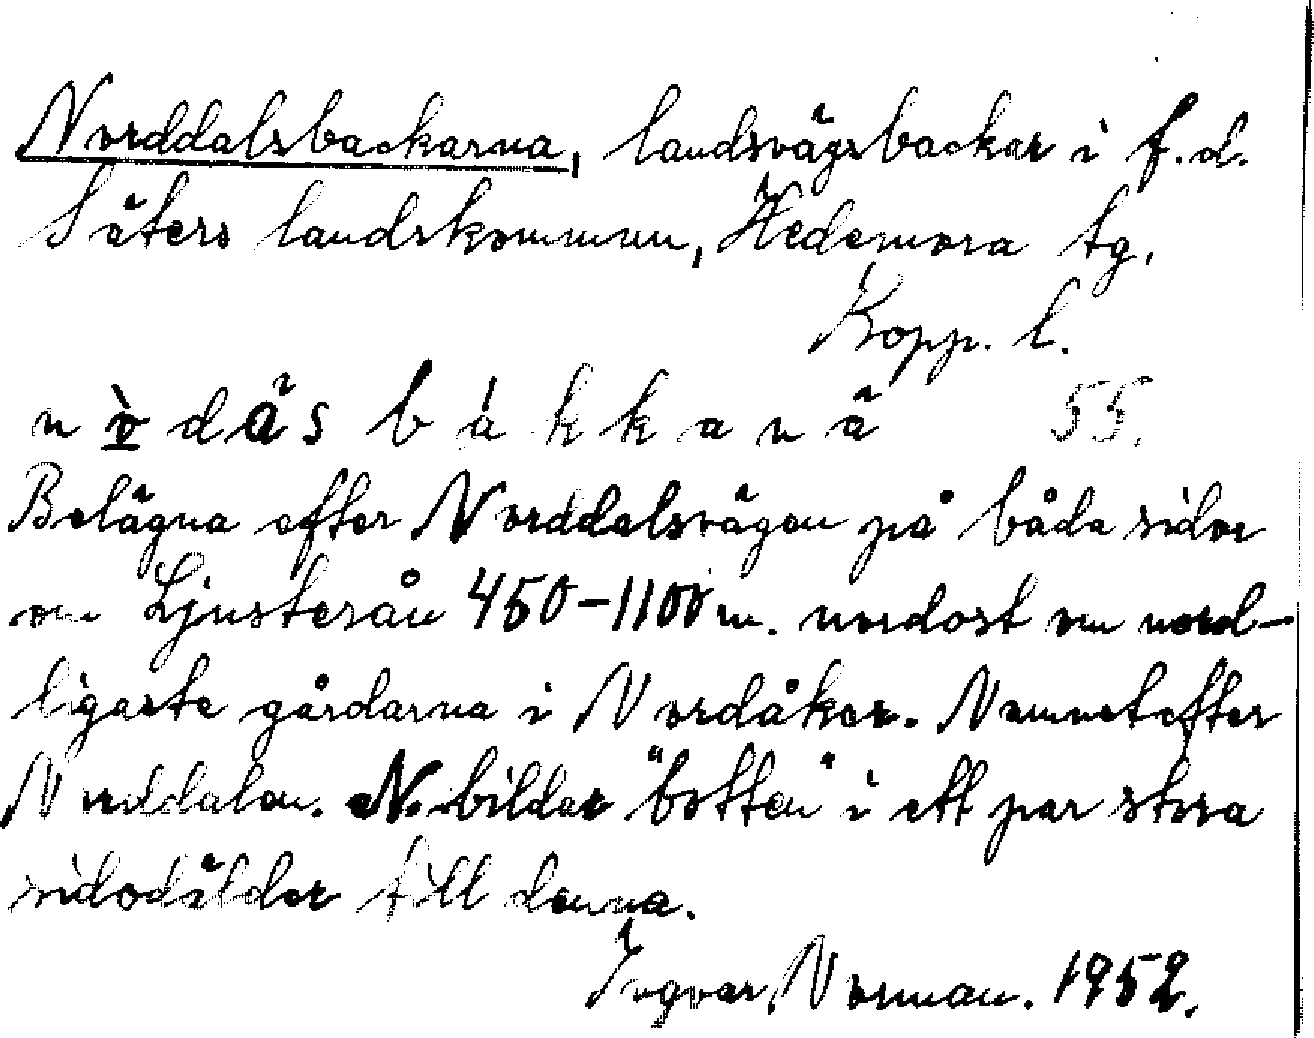 Norddalsbackarna, landsvägsbackar i f.d.
Säters landskommun, Hedemora tg,
Kopp. l.
n v̀ d ä s b á k k a n ä 55.
Belägna efter Norddalsvägen på båda sidor
om Ljusterån 450-1100 m. nordost om nord-
ligaste gårdarna i Nordåker. Namnet efter
Norddalen. N. bildar "botten" i ett par stora
sidodälder till denna.
Ingvar Norman. 1952.